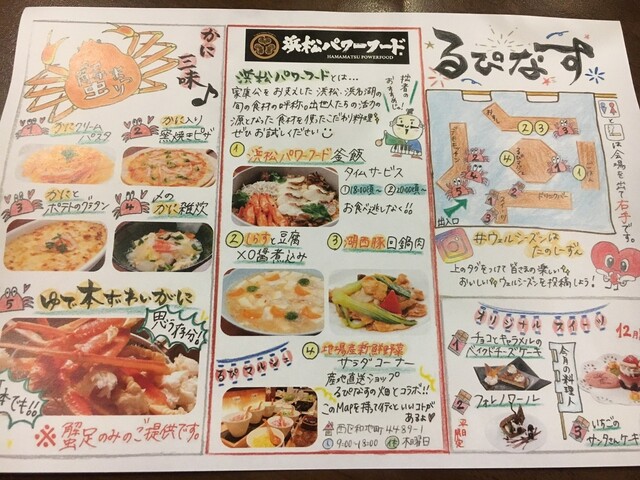 かに
三味♪
1 かにクリーム
パスタ
2 かに入り
窯焼きピザ
3 かにと
ポテトのグラタン
4 〆の
かに雑炊
5 ゆで本ずわいがに
思う存分!
本でも!!
※蟹足のみのご提供です。
浜松パワーフード
HAMAMATSU POWERFOOD
浜松パワーフードとは…
家康公をお支えした浜松、浜名湖の
旬の食材の呼称。出世人たちの活力の
源となった食材を使ったこだわり料理を
ぜひお試しください
① 浜松パワーフード釜飯
タイムサービス
①18:00頃〜 ②20:00頃〜
お食べ逃しなく!!
② しらすと豆腐
XO醤煮込み
③ 湖西豚回鍋肉
④ 地場産新鮮野菜
サラダコーナー
るぴマルシェ
産地直送ショップ
るぴなすの畑とコラボ!!
このMapを持って行くといいコトが
あるよ
9:00〜18:00 休 木曜日
るぴなす
①
②③
④
出入口
トは会場を出て右手です。
#ウェルシーズンは
たのしーずん
上のタグをつけて皆さまの楽しい
おいしいウェルシーズンを投稿しよう!
オリジナルスイーツ
1 チョコとキャラメルの
ベイクドチーズケーキ
2 フォレノワール
平日限定
今月の料理人
12月
3 いちごの
サンタさんケーキ